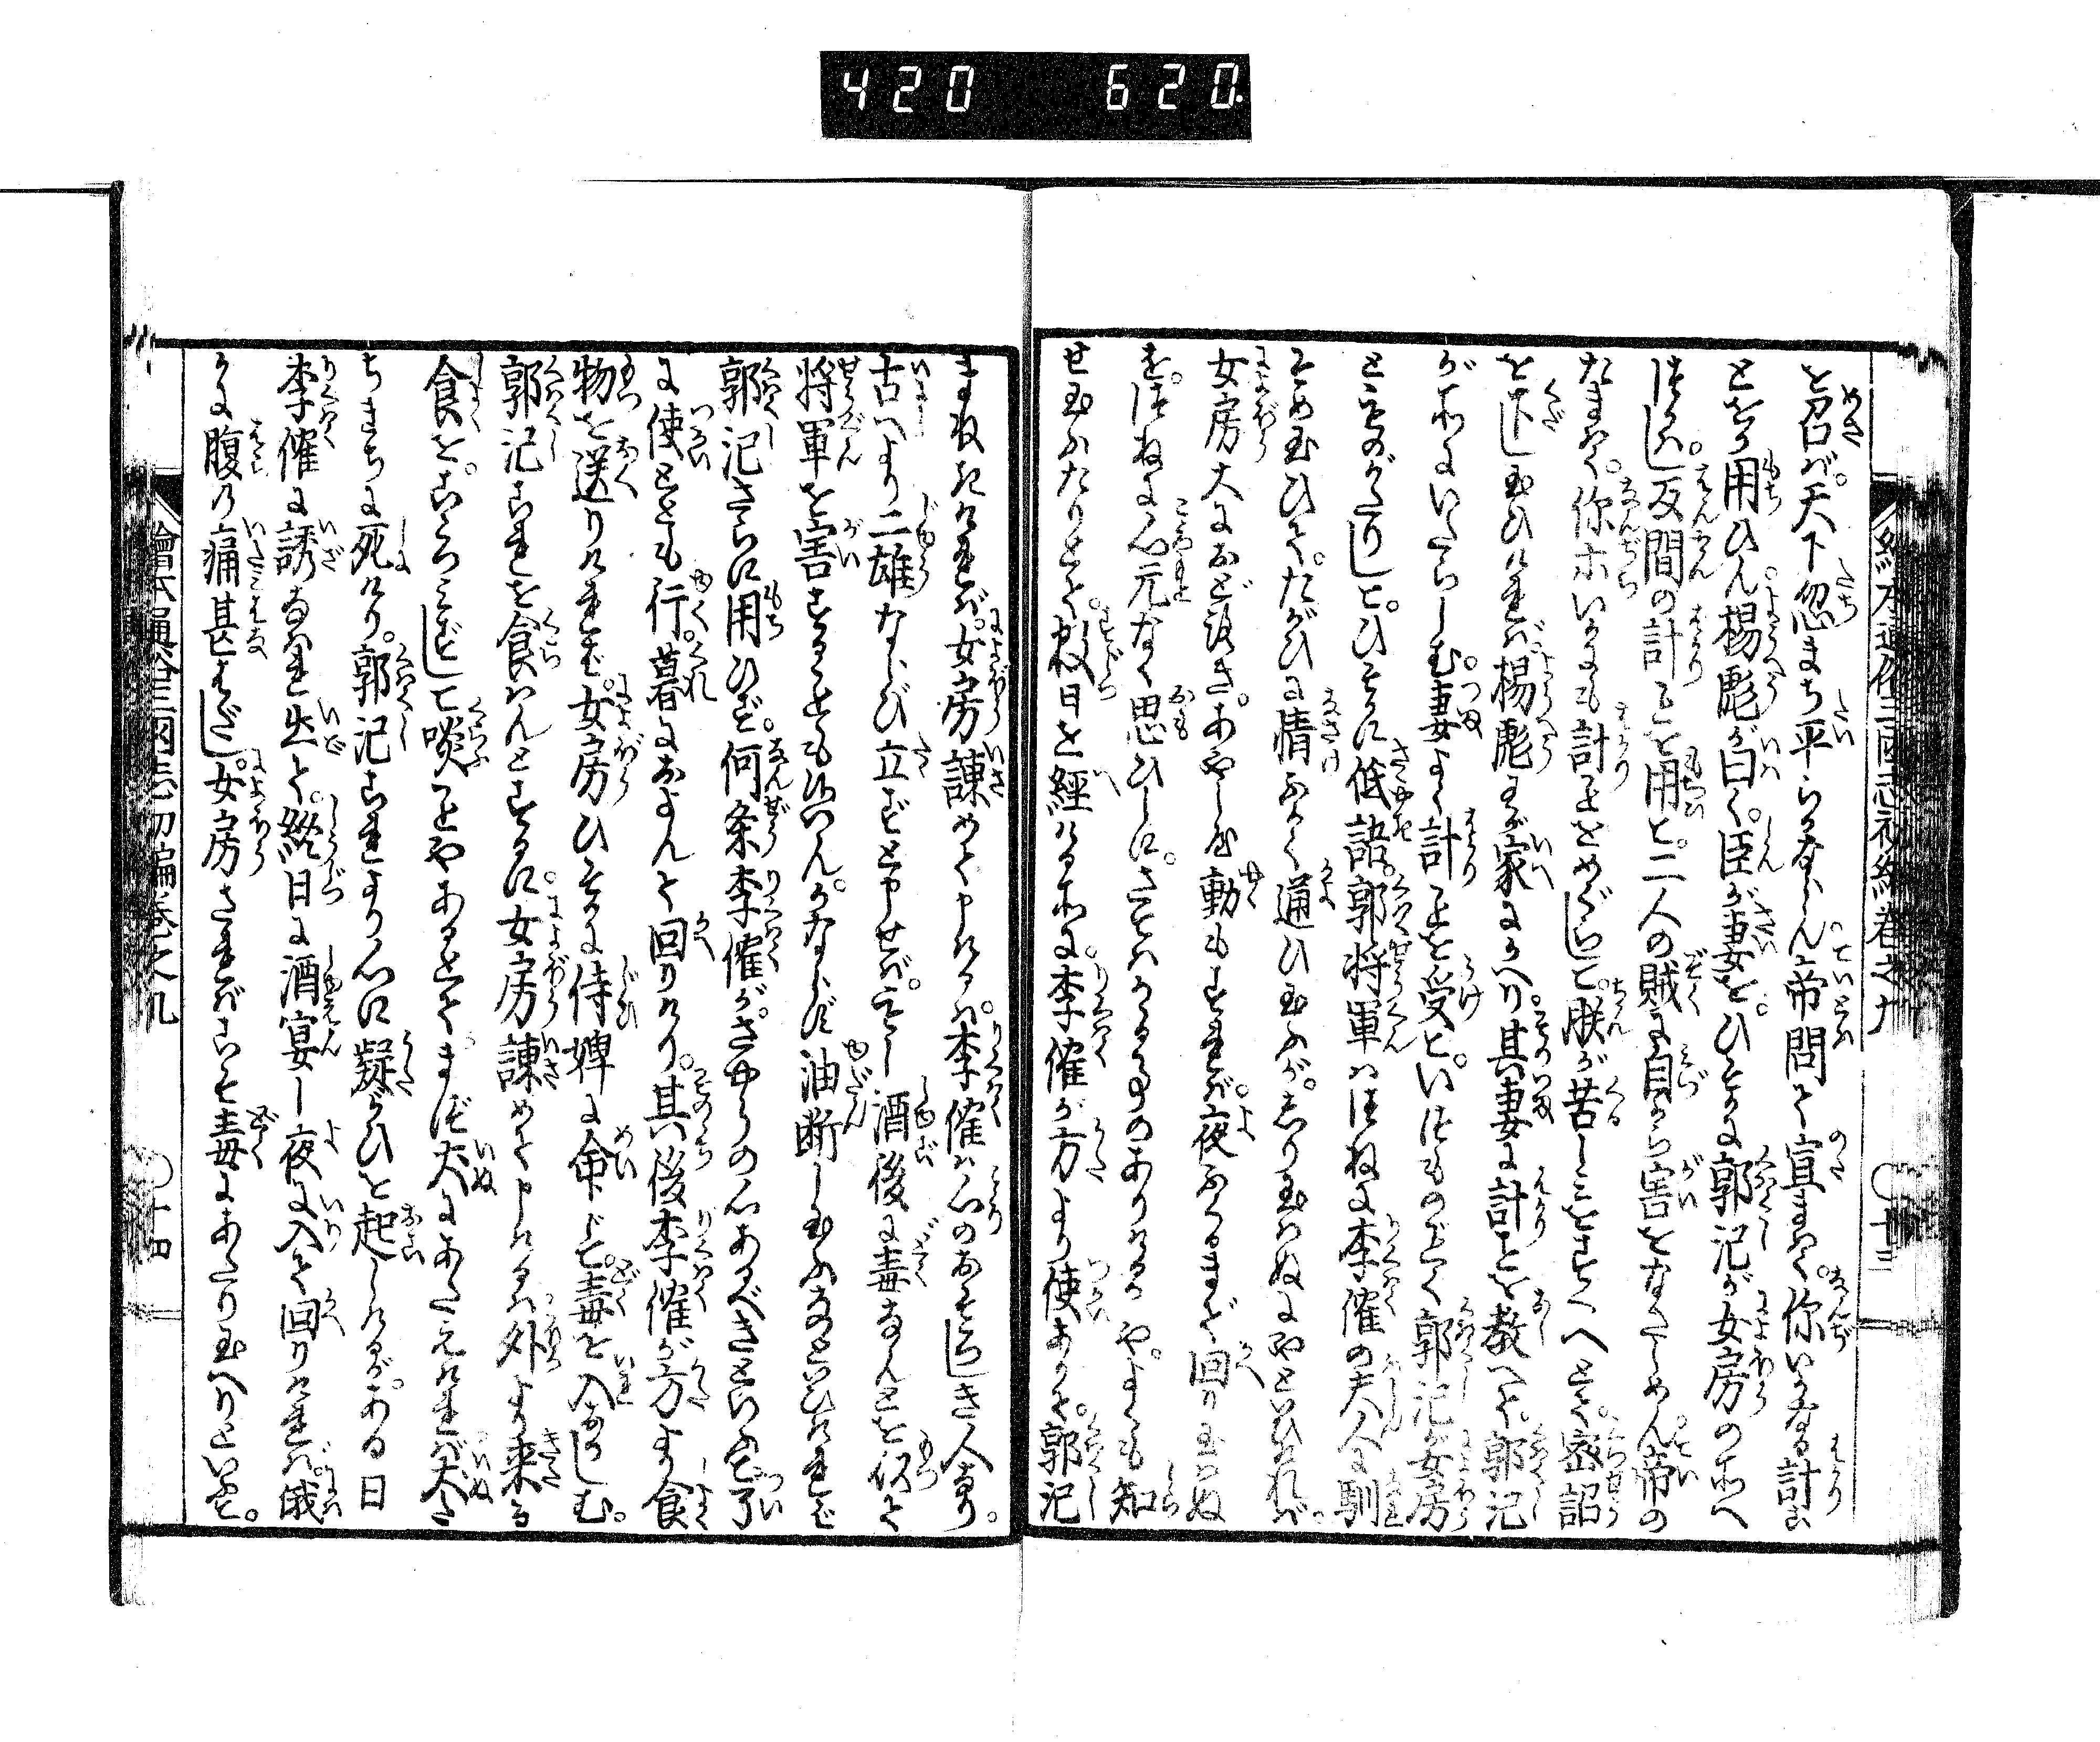 420 620.
繪本通俗三國志初編卷之九 〇十三
を召バ。天下忽まち平らかならん。帝問て宣まはく。你いかなる計ご
とをか用ひん。楊彪が曰く。臣が妻を。ひそかに郭汜が女房の所へ
つかはし。反間の計ことを用て。二人の賊に自から害をなさしめん。帝の
たまはく。你ホいかにも計ごとをめぐらして。朕が苦しみをすくへとて。密詔
を下し玉ひければ。楊彪わが家にかへり。其妻に計ごとを教へて。郭汜
が所にいたらしむ。妻よく計ことを受て。いつものごとく郭汜が女房
とものがたりして。ひそかに低語。郭將軍はつねに李傕の夫人に馴
そめ玉ひて。たがひに情ふかく通ひ玉ふが。しり玉はぬにやといひければ。
女房大におどろき。あやしや動もすれば。夜ふくるまで回り玉はぬ
を。つねに心元なく思ひしに。さてはかゝる事のありけるか。よくも知
せ玉ふたりとて。數日を經ける所に。李傕が方より使ありて。郭汜
まねきければ。女房諫めて申けるは。李傕は心のおそろしき人なり。
古へより二雄ならび立ずと申せば。もし酒後に毒なんどを以て
將軍を害することも候はん。かならず油断し玉ふなといひければ
郭汜さらに用ひず。何条李傕が。さやうの心あるべきといふて了
に使とともに行。暮におよんで回りけり。其後李傕が方より食
物を送りければ。女房ひそかに侍婢に命じて。毒を入おかしむ。
郭汜これを食はんとするに。女房諫めて申けるは。外より來る
食を。こゝろみずして啖ことやあるとて。まづ犬にあたえければ。犬
たちまちに死けり。郭汜これより心に疑がひを起しけるが。ある日
李傕に誘なはれ出て。終日に酒宴し夜に入て回りければ。俄
かに腹の痛甚はだし。女房さればこそ毒にあたり玉へりといふて。
繪本通俗三國志初編卷之九 〇十四